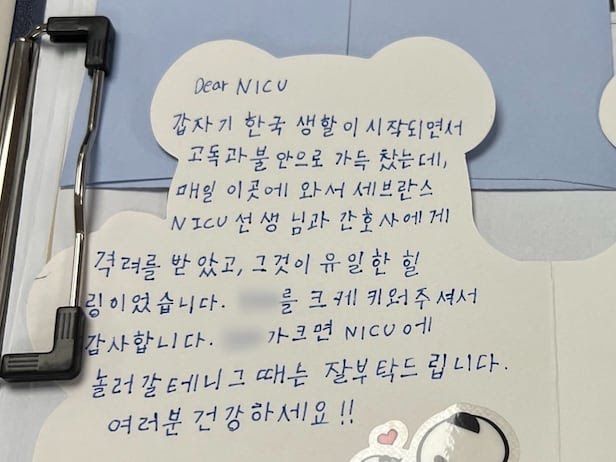 Dear NICU
갑자기 한국 생활이 시작되면서
고독과 불안으로 가득 찼는데,
매일 이곳에 와서 세브란스
NICU 선생님과 간호사에게
격려를 받았고, 그것이 유일한 힐
링이었습니다. 를 크게 키워주셔서
감사합니다. 가 크면 NICU에
놀러갈테니 그 때는 잘부탁드립니다.
여러분 건강하세요!!